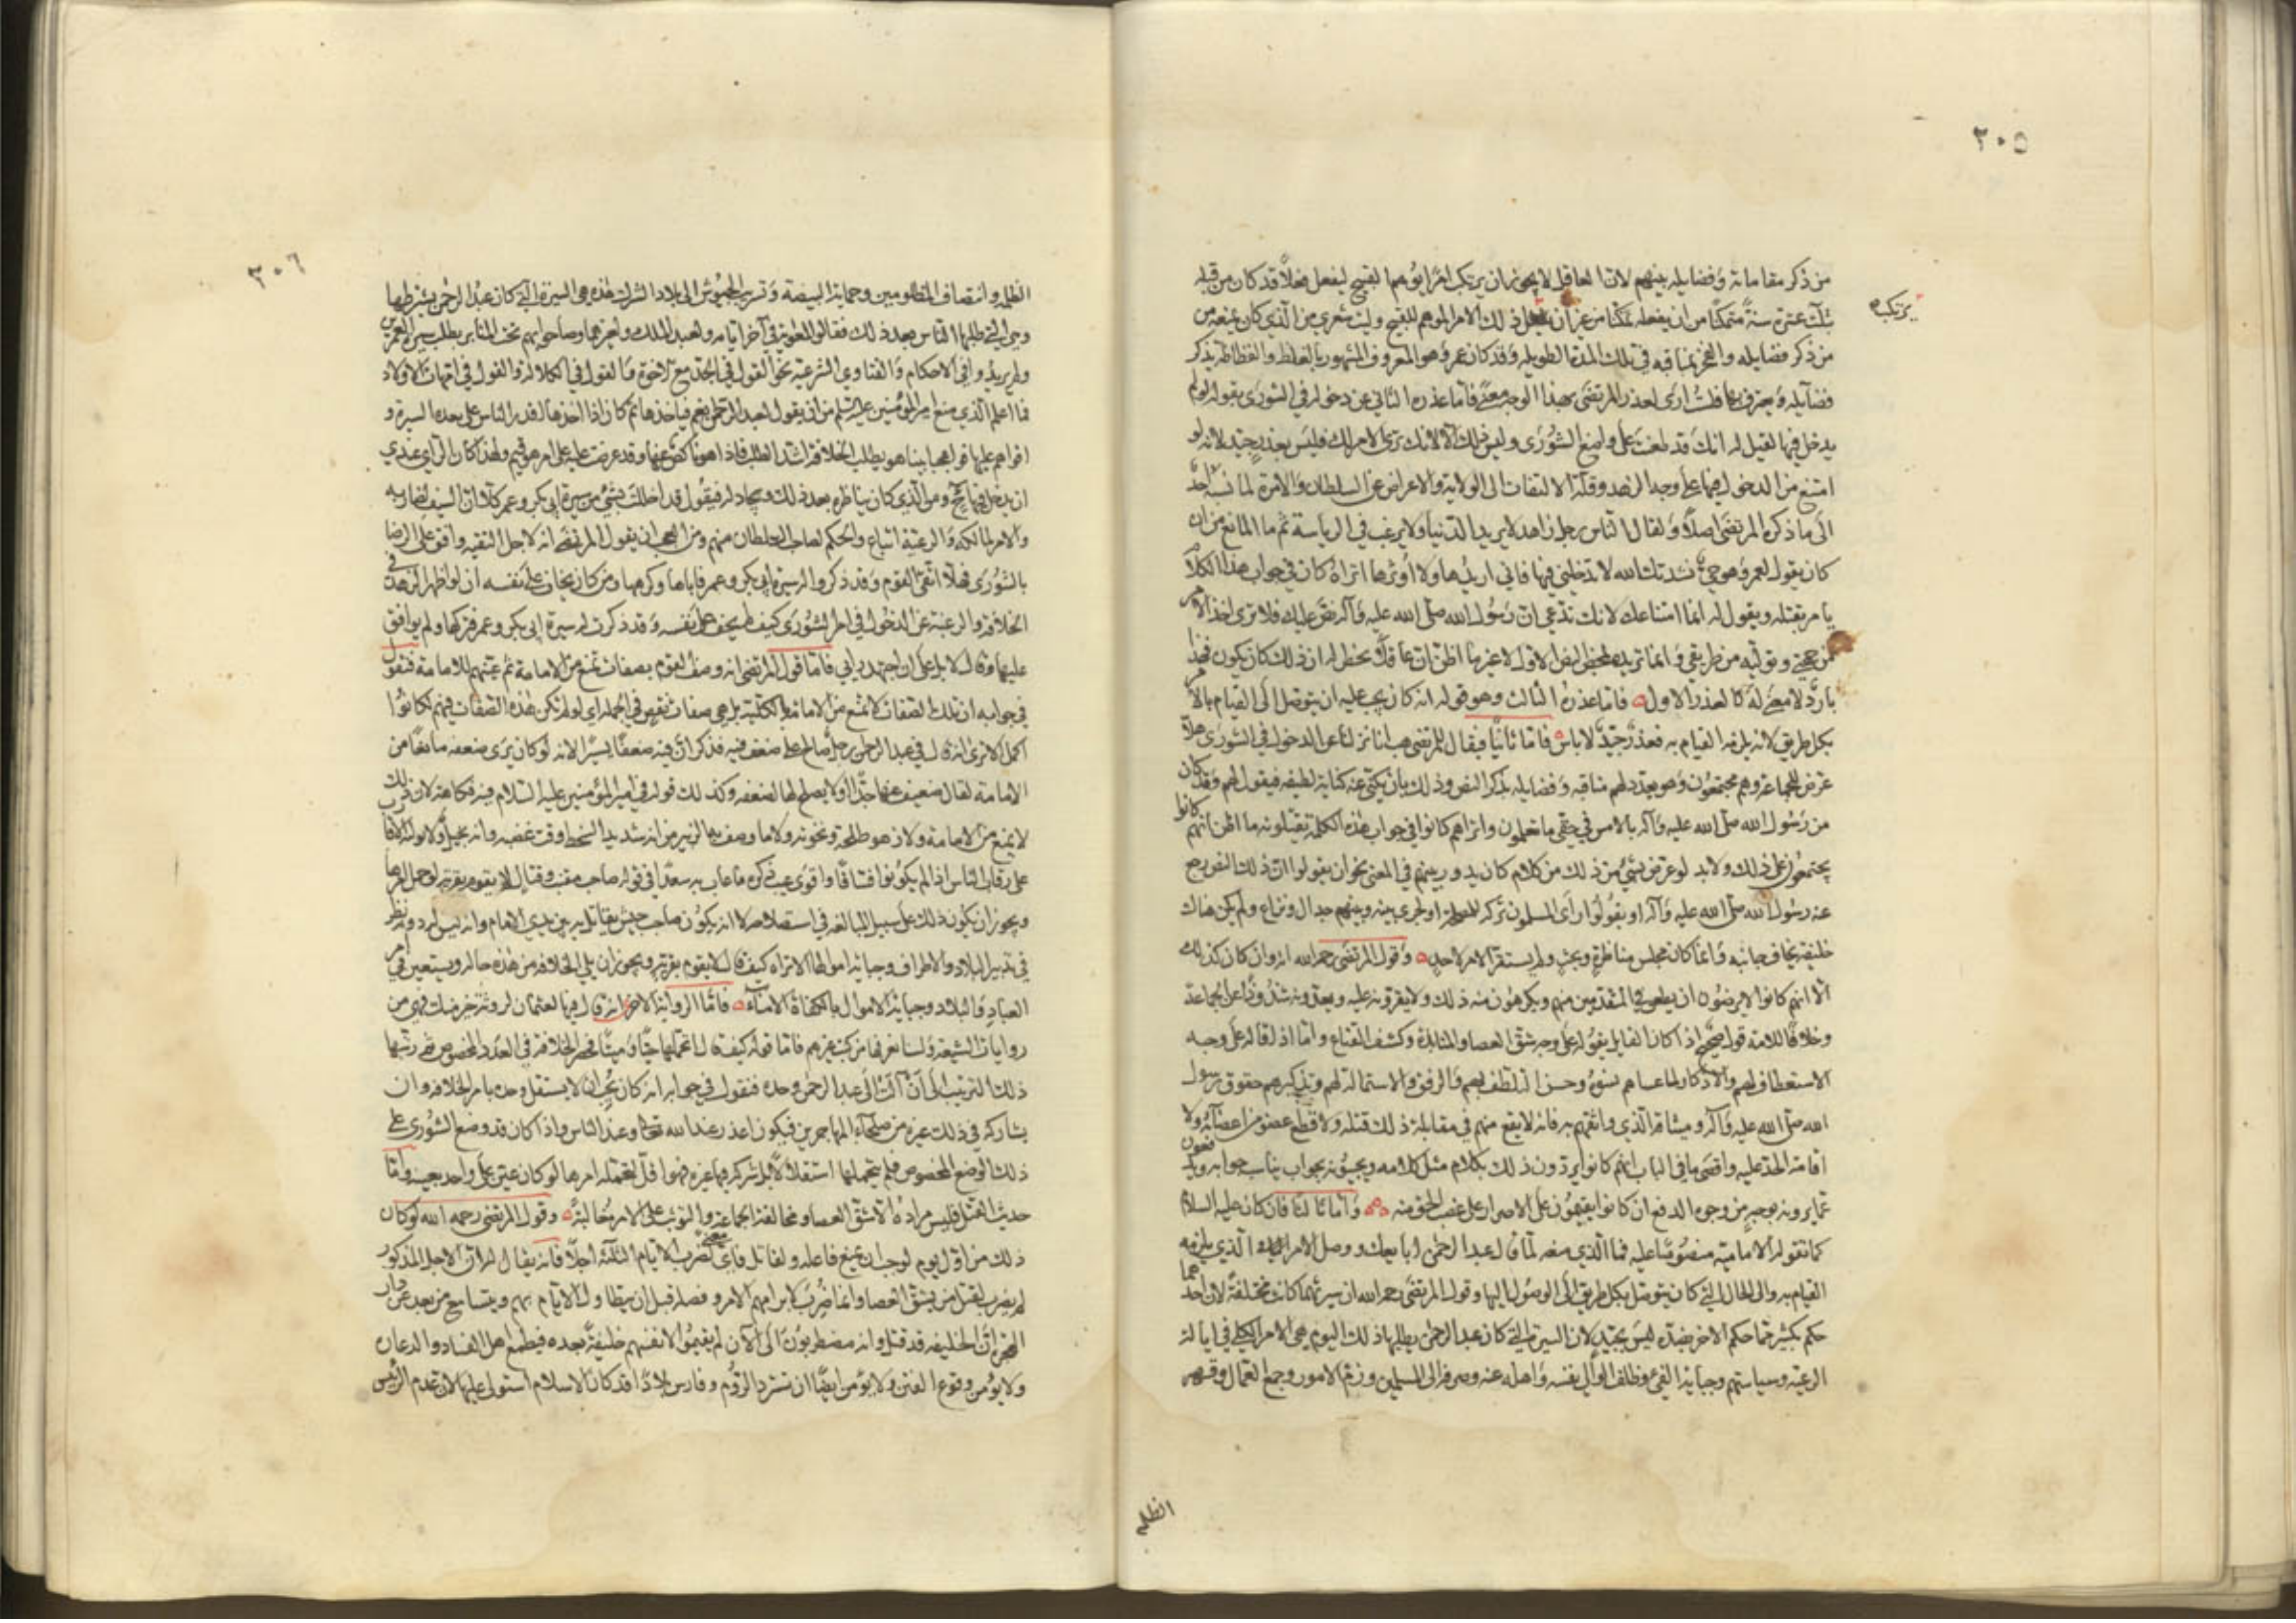 ٣٠٥
من ذكر مقاماته وفضايله بينهم لان العاقل لا يجوز ان يرتكب امرا يوهم القبيح ليفعل فعلا قد كان من قبله
يرتكبه
بثلث عشرة سنة متمكنا من ان يفعله ممكنا من غير ان ذلك الامر الموهم للقبيح وليت شعري من الذي كان يمنعه من
من ذكر فضايله والفخر بمناقبه في تلك المدة الطويلة وقد كان عمر وهو المعروف المشهور بالغلظ والفظاظة يذكر
فضآيله ويعترف بها فلست ارى لعذر المرتضى بهذا الوجه معنى فاما عذره الثاني عن دخوله في الشورى بقوله لو لم
يدخل فيها لقيل له انك قد طعنت على واضع الشورى وليس ذلك الا لانك ترى الامر لك فليس بعذر جيد لانه لو
امتنع من الدخول فيها على وجه الزهد وقلة الالتفات الى الولاية والاعراض عن السلطان والامرة لما نسبه احد
الى ما ذكره المرتضى اصلا ولقال الناس رجل زاهد لا يريد الدنيا ولا يرغب في الرياسة ثم ما المانع من ان
كان يقول لعمر وهو حي نشدتك الله لا تدخلني فيها فاني لا اريدها ولا اوثرها اتراه كان في جواب هذا الكلام
يامر بقتله ويقول له انما امتناعك لانك تدعي ان رسول الله صلى الله عليه وآله نص عليك فلا ترى اخذ الامر
من جهتي وتوليه من طريقي وانما تريده بمحض النص الاول لا غير ما اظن ان عاقلا يخطر له ان ذلك كان يكون فهذا
بارد لا معنى له كالعذر الاول فاما عذره الثالث وهو قوله انه كان يجب عليه ان يتوصل الى القيام بالامر
بكل طريق لانه يلزمه القيام به فعذر جيد لا باس فاما ثانيا فيقال للمرتضى هب انا نزلنا عن الدخول في الشورى هلا
عرض للجماعة وهم مجتمعون وهو يعدد لهم مناقبه وفضايله بذكر النص وذلك بان يكني عنه كناية لطيفة فيقول لهم وقد كان
من رسول الله صلى الله عليه وآله بالامس في حقي ما تعلمون واتراهم كانوا في جواب هذه الكلمة يقتلونه ما اظن انهم كانوا
يجتمعون على ذلك ولا بد لو عرض بشيء من ذلك من كلام كان يدور بينهم في المعنى نحو ان يقولوا ان ذلك النص رجع
عنه رسول الله صلى الله عليه وآله او يقولوا راى المسلمون تركه للمصلحة او يجري بينه وبينهم جدال ونزاع ولم يكن هناك
خليفة يخاف جانبه وانما كان مجلس مناظرة وبحث ولم يستقر الامر لاحد وقول المرتضى رحمه الله انه وان كان كذلك
الا انهم كانوا لا يرضون ان يطعن في المتقدمين منهم ويكرهون منه ذلك ولا يقرونه عليه ويعدونه شذوذا عن الجماعة
وخلافا للامة قول صحيح اذا كان القايل يقوله على وجه شق العصا والمنابذة وكشف القناع واما اذا قاله على وجه
الاستعطاف لهم والاذكار لما عساهم نسوه وحسن التلطف بهم والرفق والاستمالة لهم وتذكيرهم حقوق رسول
الله صلى الله عليه وآله وميثاقه الذي واثقهم به فانه لا يقع منهم في مقابلة ذلك قتله ولا قطع عضو من اعضآئه ولا
اقامة الحد عليه واقصى ما في الباب انهم كانوا يردون ذلك بكلام مثل كلامه ويجيبونه بجواب يناسب جوابه ويدفعون
عما يرونه بوجه من وجوه الدفع ان كانوا يقيمون على الاصرار على غصب الحق منه واما ثالثا فان كان عليه السلام
كما تقوله الامامية منصوصا عليه فما الذي منعه لما قال عبد الرحمن ابايعك ووصل الامر الذي يلزمه
القيام به والى الحال التي كان يتوصل بكل طريق الى الوصول اليها وقول المرتضى رحمه الله ان سيرتهما كانت مختلفة لان احدهما
حكم بكثير مما حكم الاخر بضده ليس بجيد لان السيرة التي كان عبد الرحمن يطلبها ذلك اليوم هي الامر الكلي في ايالة
الرعية وسياستهم وجباية الفيء وظلف الوالي نفسه واهله عنه وصرفه الى المسلمين ورم الامور وجمع العمال وقهر
الظلمة
٣٠٦
الظلمه وانصاف المظلومين وحماية البيضة وتسريب الجيوش الى بلاد الشرك هذه هي السيرة التي كان عبد الرحمن يشترطها
وهي التي طلبها الناس بعد ذلك فقالوا لمعوية في آخر ايامه ولعبد الملك ولغيرهما وصاحوا بهم تحت المنابر نطلب سيرة العمرين
ولم يريدوا في الاحكام والفتاوي الشرعية نحو القول في الجد مع الاخوة والقول في الكلالة والقول في امهات الاولاد
فما اعلم الذي منع امير المؤمنين عليه السلم من ان يقول لعبد الرحمن نعم فياخذها ثم كان اذا اخذها اقدر الناس على هذه السيرة و
اقواهم عليها فوا عجبا بينا هو يطلب الخلافة اشد الطلب فاذا هو ناكص عنها وقد عرضت عليه على امر هو قيم به ولهذا كان الراي عندي
ان يدخل فيها ومن الذي كان يناظره بعد ذلك ويجادله فيقول قد اخللت بشيء من سيرة ابي بكر وعمر كلا ان السيف لضاربه
والامر لمالكه والرعية اتباع والحكم لصاحب السلطان منهم ومن العجب ان يقول المرتضى انه لاجل التقية وافق على الرضا
بالشورى فهلا اتقى القوم وقد ذكروا له سيرة ابي بكر وعمر فاباها وكرهها ومن كان يخاف على نفسه ان لو اظهر الزهد في
الخلافة والرغبة عن الدخول في امر الشورى كيف لم يخف على نفسه وقد ذكرت له سيرة ابي بكر وعمر فتركها ولم يوافق
عليها وقال لا بل على ان اجتهد رايي فاما قول المرتضى انه وصف القوم بصفات تمنع من الامامة ثم عينهم للامامة فنقول
في جوابه ان تلك الصفات لا تمنع من الامامة بالكلية بل هي صفات تنقص في الجملة اي لو لم تكن هذه الصفات فيهم لكانوا
اكمل الا ترى انه قال في عبد الرحمن رجل صالح على ضعف فيه فذكر ان فيه ضعفا يسيرا لانه لو كان يرى ضعفه مانعا من
الامامة لقال ضعيف عنها جدا او لا يصلح لها لضعفه وكذلك قوله في امير المؤمنين عليه السلام فيه فكاهة لان ذلك
لا يمنع من الامامة ولا زهو طلحة ونخوته ولا ما وصف به الزبير من انه شديد السخط وقت غضبه وانه بخيل ولا تولية الاقارب
على رقاب الناس اذا لم يكونوا فساقا واقوى عيب ذكره ما عاب به سعدا في قوله صاحب مقنب وقتال لا يقوم بقرية لو حمل امرها
ويجوز ان يكون ذلك على سبيل المبالغة في استصلاحه لان يكون صاحب جيش يقاتل به بين يدي الامام وانه ليس له دربة ونظر
في تدبير البلاد والاطراف وجباية اموالها الا تراه كيف قال لا يقوم بقرية ويجوز ان يلي الخلافة من هذه حاله ويستعين في امر
العباد والبلاد وجباية الاموال بالكفاة الامناء فاما الرواية الاخرى انه قال فيها لعثمان لروثة خير منك فهي من
روايات الشيعة ولسنا نعرفها من كتب غيرهم فاما قوله كيف قال لا اتحملها حيا وميتا فحصر الخلافة في العدد المخصوص ثم رتبها
ذلك الترتيب الى ان آلت الى عبد الرحمن وحده فنقول في جوابه انه كان يحب ان لا يستقل وحده بامر الخلافه وان
يشاركه في ذلك غيره من صلحاء المهاجرين فيكون اعذر عند الله تعالى وعند الناس فاذا كان قد وضع الشورى على
ذلك الوضع المخصوص فلم يتحملها استقلالا بل شركه فيها غيره فهو اقل لتحمله امرها لو كان عين على واحد بعينه واما
حديث القتل فليس مراده الا شق العصا ومخالفة الجماعة والتوثب على الامر مغالبة وقول المرتضى رحمه الله لو كان
ذلك من اول يوم لوجب ان يمنع فاعله ويقاتل فاي معنى لضرب الايام الثلثة اجلا فانه يقال له ان الاجل المذكور
لم يضرب لقتل من يشق العصا وانما ضرب لابرامهم الامر وفصله قبل ان يتطاول الايام بهم ويتسامع من بعد عن دار
الهجرة ان الخليفه قد قتل وانه مضطربون الى الآن لم يقيموا لانفسهم خليفة بعده فيطمع اهل الفساد والدعارة
ولا يؤمن وقوع الفتن ولا يؤمن ايضا ان تسترد الروم وفارس بلادا قد كان الاسلام استولى عليها لان عدم الرئيس